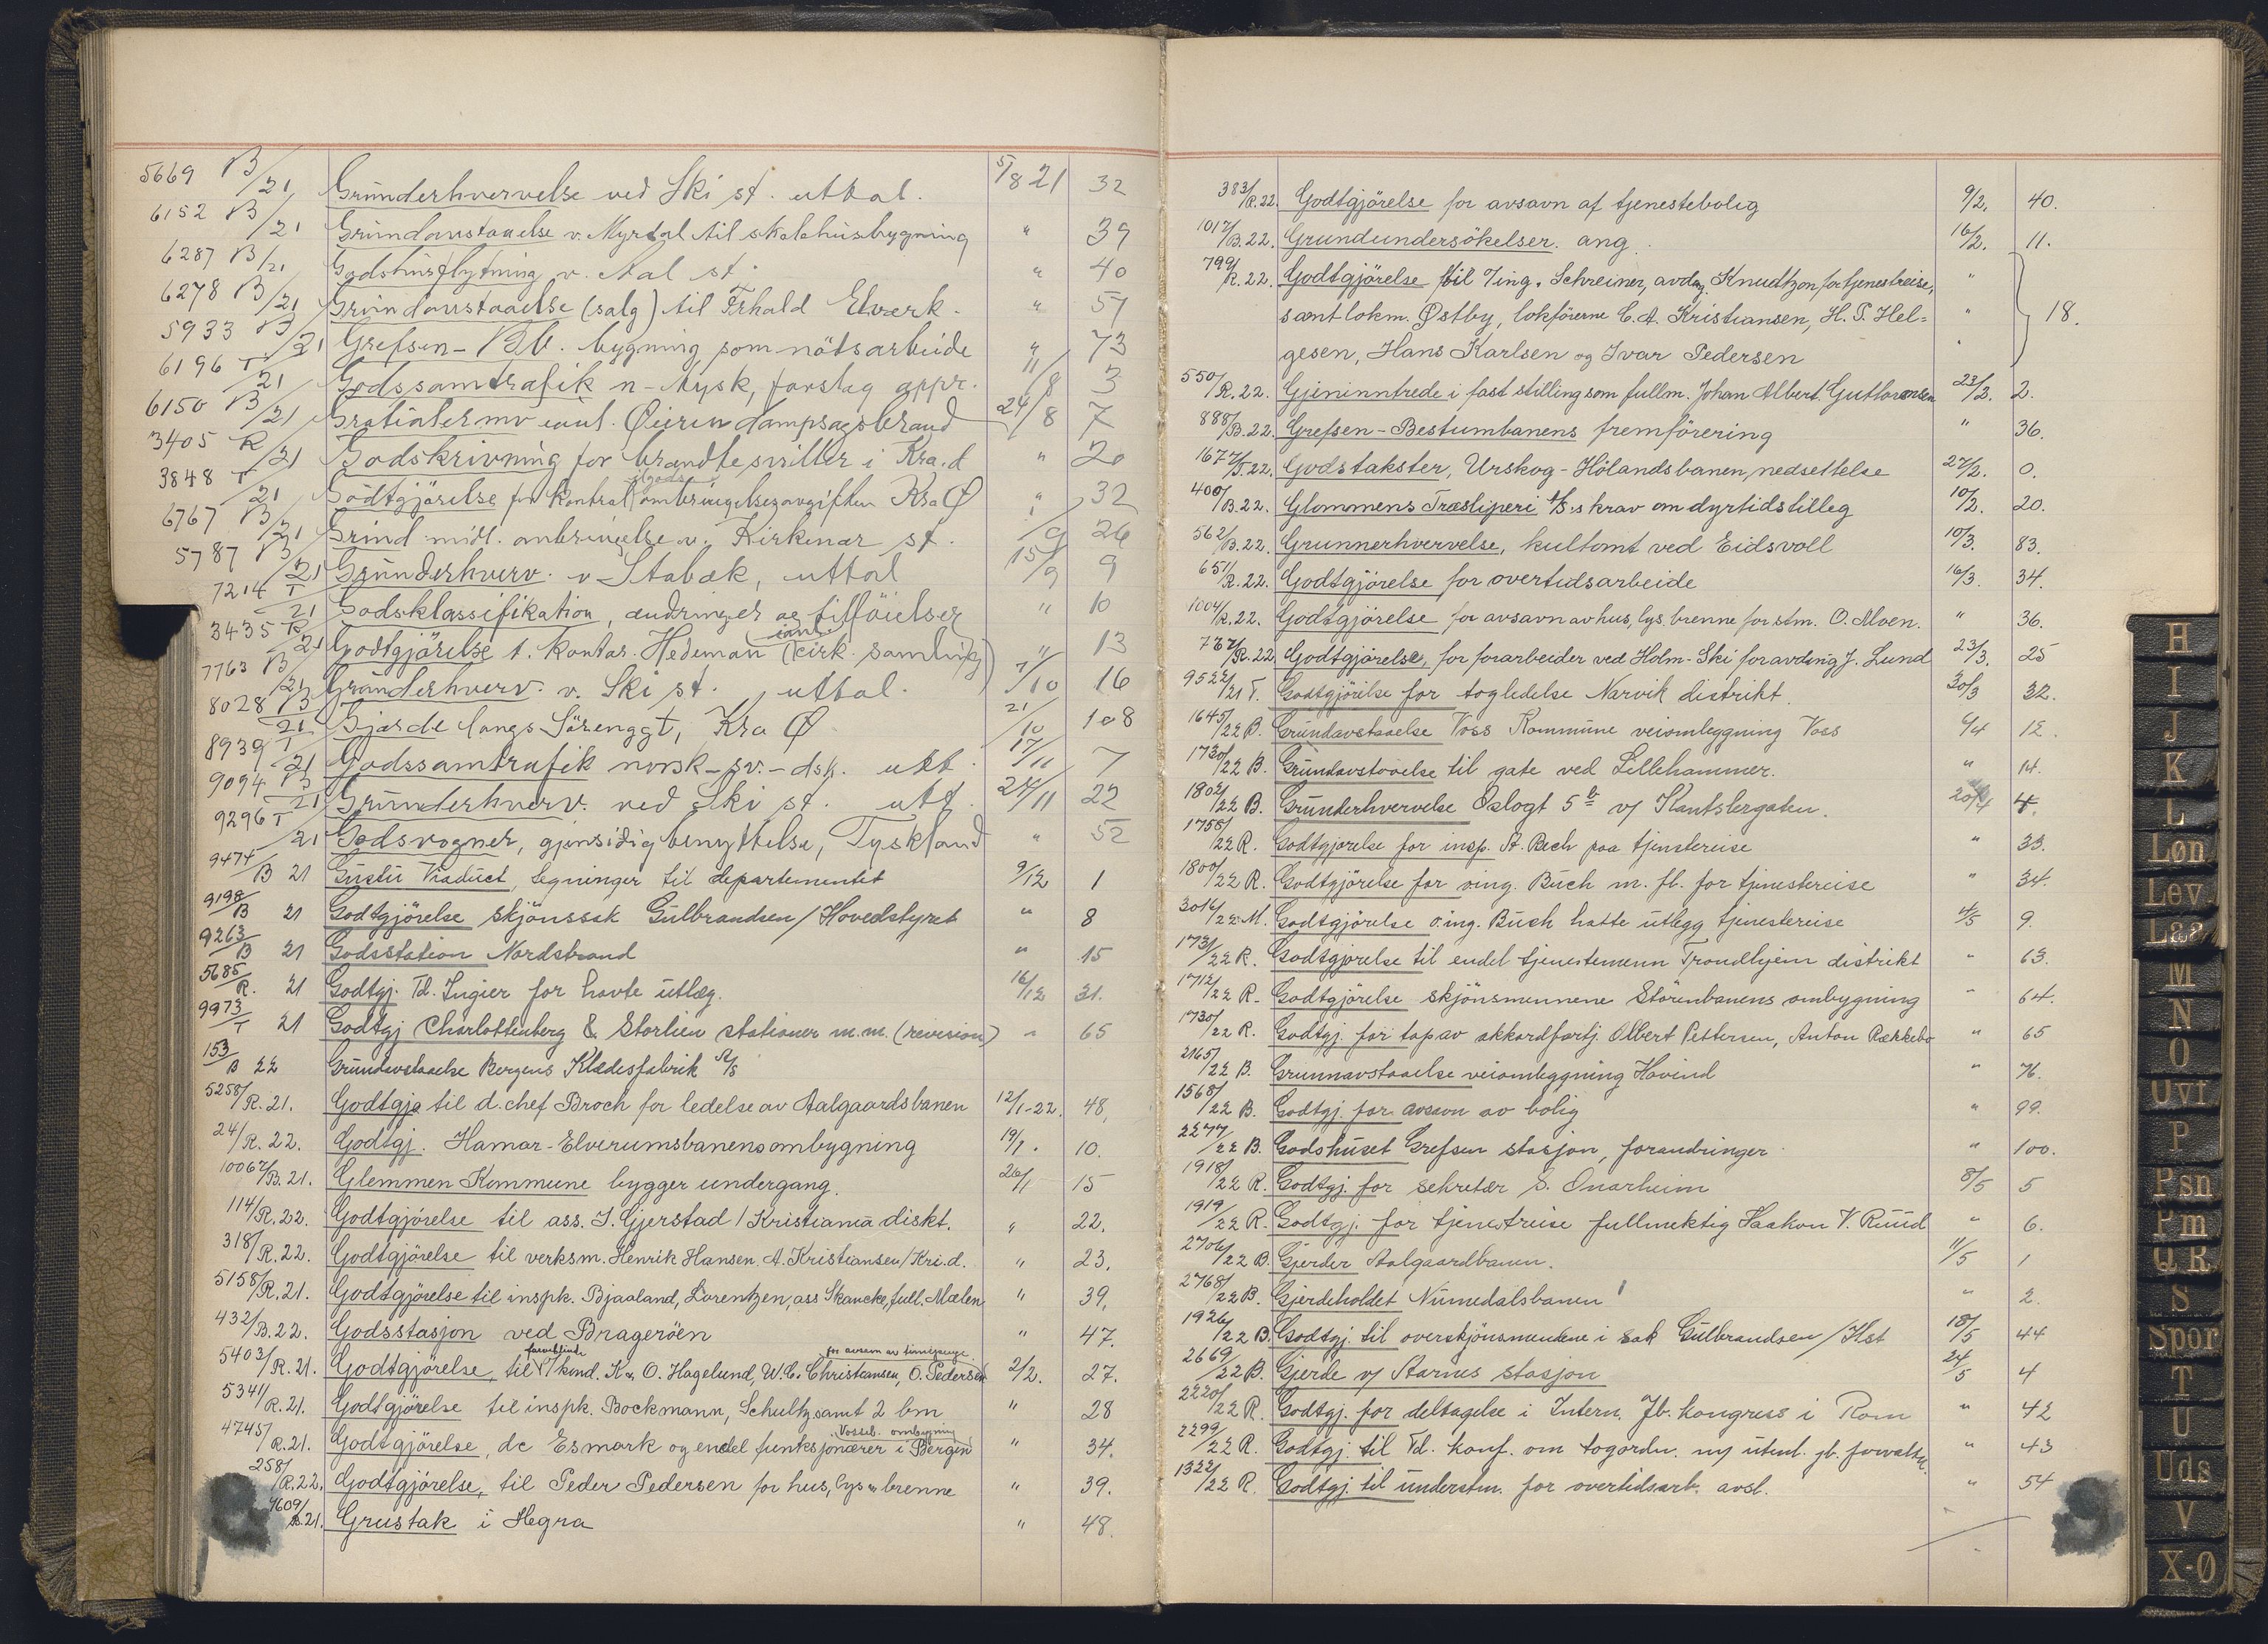 5669 B/21 Grunderhvervelse ved Ski st. uttal. 5/8 21 32
6152 B/21 Grundavstaaelse v. Myrdal til skolehusbygning " 39
6287 B/21 Godshusflytning v. Aal st. " 40
6278 B/21 Grundavstaaelse (salg) til Trhald Elverk. " 51
5933 B/21 Grefsen - B.b. bygning som nödsarbeide " 73
6196 T/21 Godssamtrafik n - tysk, forslag oppr. 11/8 3
6150 B/21 Gratialer mv Øieren dampsagsbrand 24/8 7
3405 R/21 Godskrivning for brændte sviller i Kra.d " 20
3848 T/21 Godtgjörelse for kontrol ilgods ombringelsesavgiften Kra Ø " 32
6767 B/21 Grind midl. anbringelse v. Kirkenær st. /9 26
5787 B/21 Grunderhverv. v Stabæk, uttal 15/9 9
7214 T/21 Godsklassifikation, ændringer og tilföielser " 10
3435 R/21 Godtgjörelse t. Kontor. Hedeman (cirk. samling) " 13
7763 B/21 Grunderhverv. v. Ski st., uttal. 7/10 16
8028 B/21 Gjærde langs Sörenggt, Kra Ø 21/10 108
8939 T/21 Godssamtrafik norsk-sv.-dsk. utt. 17/11 7
9094 B/21 Grunderhverv. ved Ski st. utt. 24/11 22
9296 T/21 Godsvogner, gjensidig benyttelse, Tyskland " 52
9474/B 21 Gustu Viaduct, tegninger til departementet 9/12 1
9198/B 21 Godtgjörelse skjönssak Gulbrandsen/Hovedstyret " 8
9263/B 21 Godsstation Nordstrand " 15
5685/R. 21 Godtgj. Td. Ingier for havte utlæg. 16/12 31.
9973/T 21 Godtgj Charlottenberg & Storlien stationer m.m. (revision) " 65
153/B 22 Grundavstaaelse Bergens Klædesfabrik A/S
5258/R. 21. Godtgjø til d. chef Broch for ledelse av Aalgaardsbanen 12/1-22. 48,
24/R. 22. Godtgj. Hamar-Elverumsbanens ombygning 19/1. 10.
10067/B. 21. Glemmen Kommune bygger undergang. 26/1 15
114/R. 22. Godtgjörelse til ass. J. Gjerstad / Kristiania diskt. " 22.
318/R. 22. Godtgjörelse til verksm. Henrik Hansen, A. Kristiansen/Kri.d. " 23.
5158/R. 21. Godtgjörelse til inspk. Bjaaland, Lorentzen, ass Skancke, full. Mælen " 39,
432/B. 22. Godsstasjon ved Brageröen " 47.
farveblinde for avsavn av timepenge
5403/R. 21. Godtgjörelse, til kond. K. O. Hagelund, W.C. Christiansen, O. Pedersen 2/2. 27.
5341/R. 21. Godtgjörelse til inspk. Bockmann, Schultz samt 2 bm " 28
Vosseb. ombygning
4745/R. 21. Godtgjörelse, dc Esmark og endel funksjonærer i Bergen " 34.
258/R. 22. Godtgjörelse, til Peder Pedersen for hus, lys & brenne " 39.
9609/B. 21. Grustak i Hegra " 48.
383/R. 22. Godtgjörelse for avsavn af tjenestebolig 9/2. 40.
1017/B. 22. Grundundersökelser. ang. 16/2. 11.
799/R. 22. Godtgjörelse til Ting. Schreiner, avdng. Knudtzon for tjenestreise, "
samt lokm. Østby, lokförerne C. A. Kristiansen, H. P. Hel= " 18.
gesen, Hans Karlsen og Ivar Pedersen "
550/R. 22. Gjeninntrede i fast stilling som fullm. Johan Albert Guttormsen 23/2. 2.
888/B. 22. Grefsen-Bestumbanens fremförering " 36.
1677/T. 22. Godstakster, Urskog-Hölandsbanen, nedsettelse 27/2. 0.
400/B. 22. Glommens Træsliperi A/S.s krav om dyrtidstilleg 10/2. 20.
562/B. 22. Grunnerhvervelse, kultomt ved Eidsvoll 10/3. 83.
651/R. 22. Godtgjörelse for overtidsarbeide 16/3. 34.
1004/R. 22. Godtgjörelse for avsavn av hus, lys, brenne for stm. O. Moen. " 36.
767/R. 22 Godtgjörelse, for forarbeider ved Holm-Ski for avding J. Lund 23/3. 25
9522/21 T. Godtgjörelse for togledelse Narvik distrikt. 30/3 32.
1645/22 B. Grundavstaaelse Voss Kommune veiomleggning Voss 6/4 12.
1730/22 B. Grundavstaaelse til gate ved Lillehammer. " 14.
1802/22 B. Grunderhvervelse Oslogt 5 b v/ Kantslergaten. 20/4 4.
1758/22 R. Godtgjørelse for insp. A. Bech paa tjenestereise " 33.
1800/22 R. Godtgjörelse for oing. Buch m. fl. for tjenestereise " 34.
3016/22 M. Godtgjörelse o.ing. Buch hatte utlegg tjenestereise 4/5 9.
1731/22 R. Godtgjørelse til endel tjenestemenn Trondhjem distrikt " 63.
1712/22 R. Godtgjörelse skjönsmennene Störenbanens ombygning " 64.
1730/22 R. Godtgj. for tap av akkordfortj. Albert Pettersen, Anton Rækkebo " 65
2165/22 B. Grunnavstaaelse veiomleggning Hovind " 76.
1568/22 B. Godtgj. for avsavn av bolig " 99.
2277/22 B. Godshuset Grefsen stasjon, forandringer " 100.
1918/22 R. Godtgj. for sekretær S. Onarheim 8/5 5
1919/22 R. Godtgj. for tjenestreise fullmektig Haakon V. Ruud " 6.
2706/22 B. Gjerder Aalgaardbanen. 11/5 1
2768/22 B. Gjerdeholdet Numedalsbanen " 2.
1926/22 B. Godtgj. til overskjönsmendene i sak Gulbrandsen / Hst 18/5 44
2669/22 B. Gjerde v/ Aarnes stasjon 24/5 4
2220/22 R. Godtgj. for deltagelse i Intern. Jb. kongress i Rom " 42
2299/22 R. Godtgj. til Td. konf. om togordn. m/ utenl. jb. forvaltn. " 43
1322/22 R. Godtgj. til understm. for overtidsarb. avsl. " 54
H
I
J
K
L
Løn
Lev.
Laa
M
N
O
Uvf
P
Psn
Pm
Q R
S
Spor
T
U
Uds
V
X-Ø